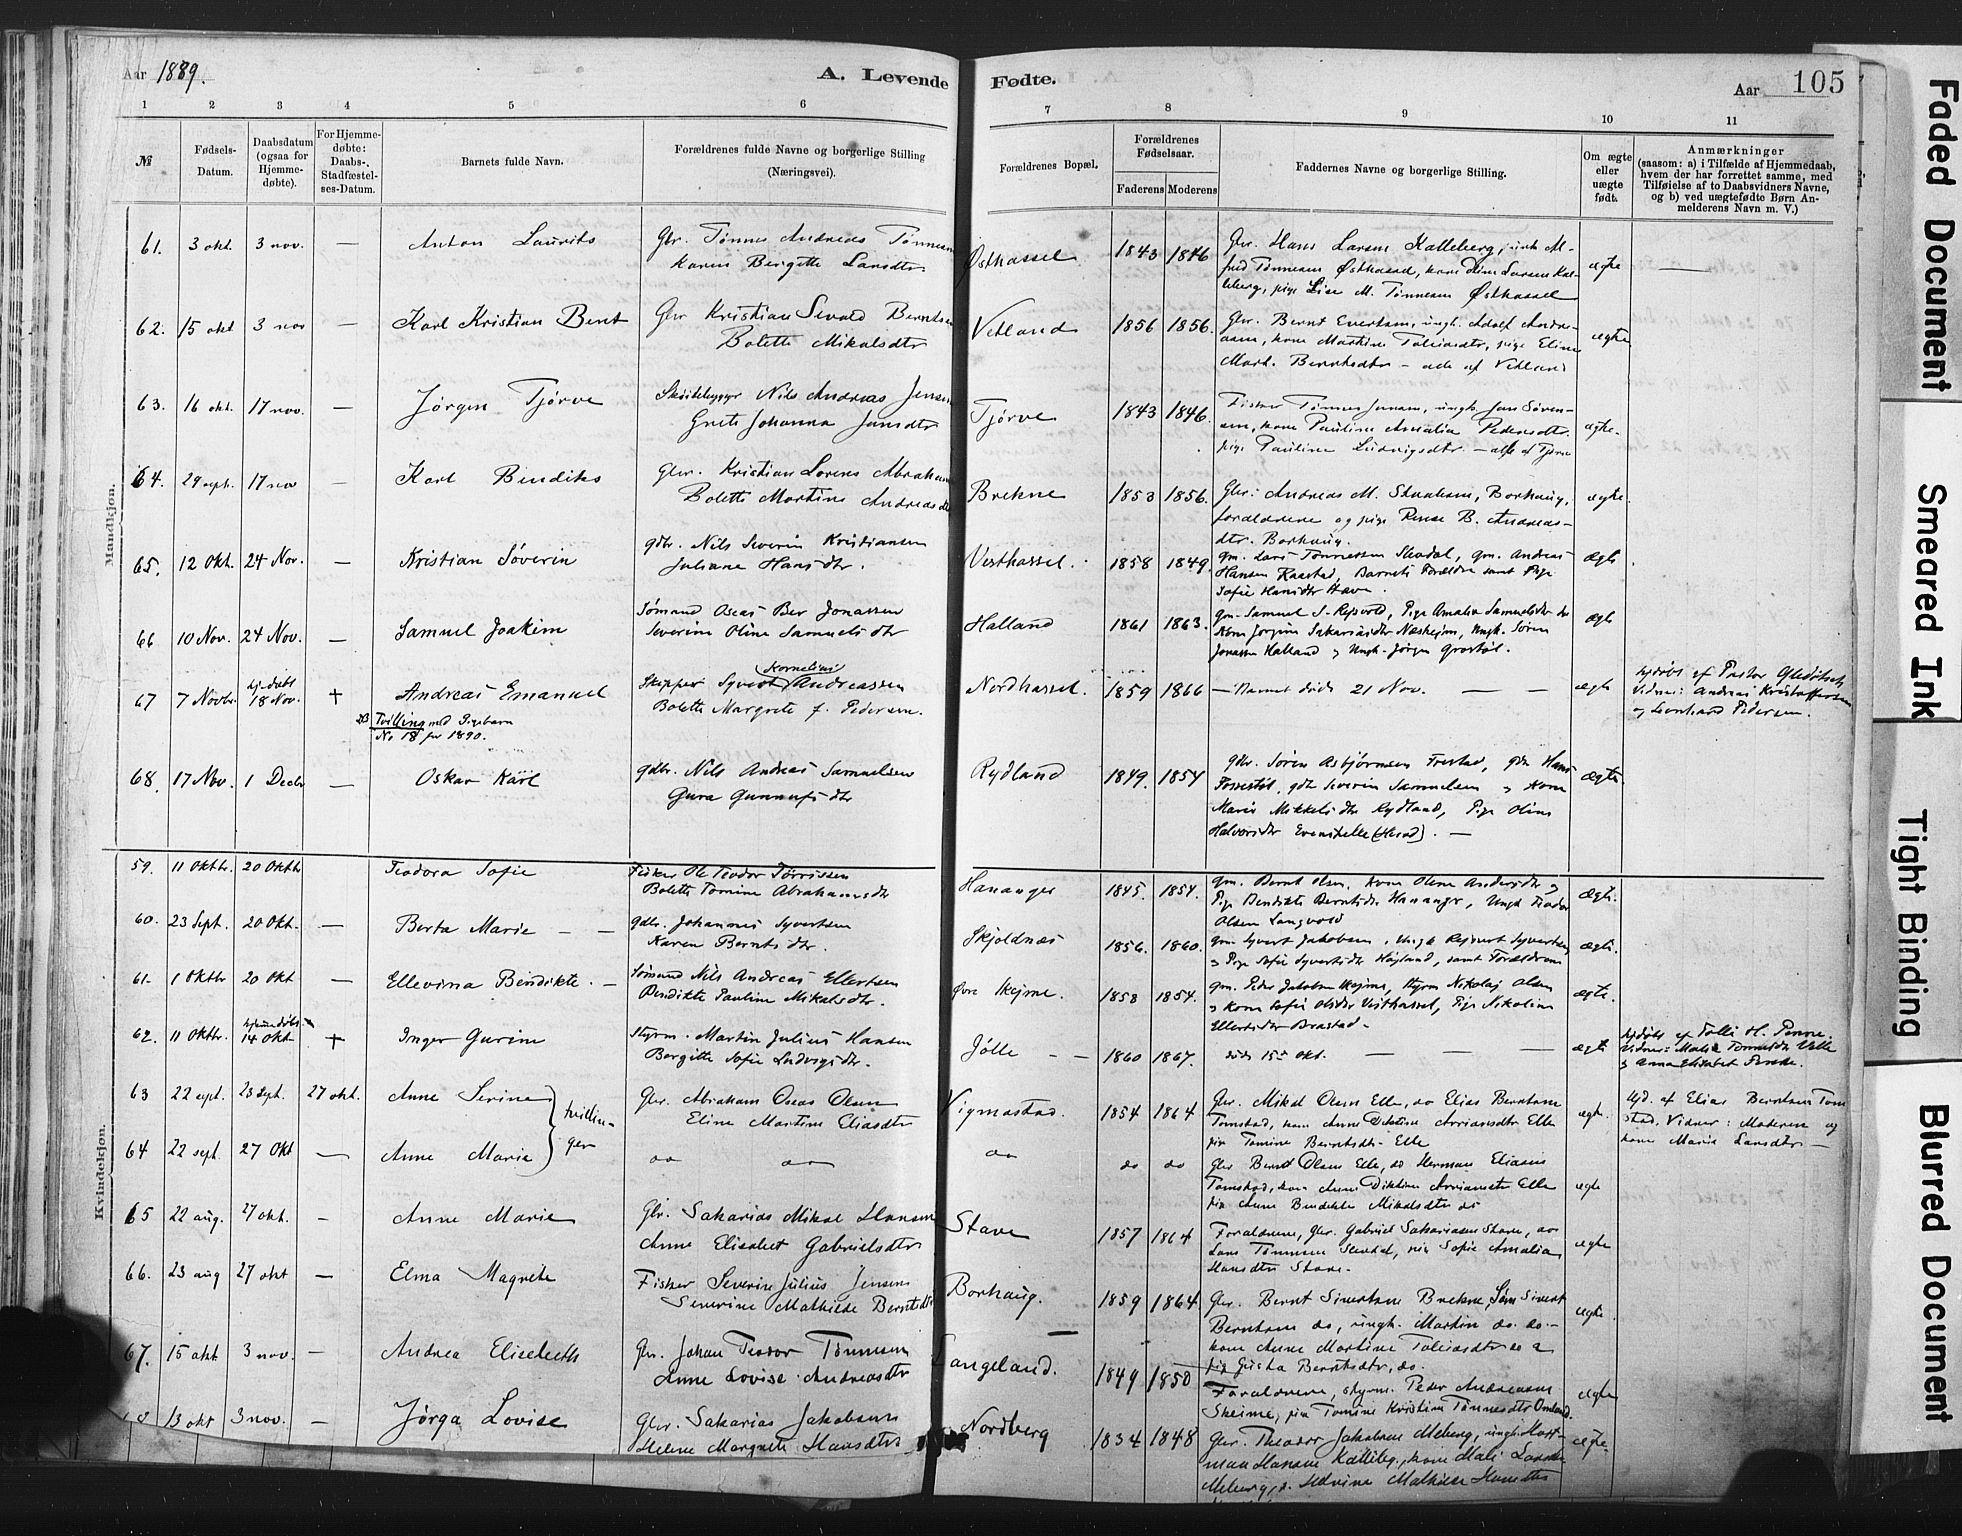 Aar 1889.
A. Levende Fødte.
Aar 105
1 2 3 4 5 6 7 8 9 10 11
№
Fødsels-
Datum.
Daabsdatum
(ogsaa for
Hjemme-
døbte).
For Hjemme-
døbte:
Daabs-.
Stadfæstel-
ses-Datum.
Barnets fulde Navn.
Forældrenes fulde Navne og borgerlige Stilling
(Næringsvei).
Forældrenes Bopæl.
Forældrenes
Fødselsaar.
Faderens Moderens
Faddernes Navne og borgerlige Stilling.
Om ægte
eller
uægte
født.
Anmærkninger
(saasom: a) i Tilfælde af Hjemmedaab,
hvem der har forrettet samme, med
Tilføielse af to Daabsvidners Navne,
og b) ved uægtefødte Børn An-
melderens Navn m. V.)
Mandkjøn.
61. 3 okt. 3 nov. — Anton Laurits
Gbr. Tønnes Andreas Tønnesen
Karen Bergitte Larsdtr
Østhassel 1843 1846
Gbr. Hans Larsen Kalleberg,
Tønnesen Østhassel, kone
pige Lise M. Tønnesen Østhassel
ægte —
62. 15 okt 3 nov — Karl Kristian Bent
Gbr Kristian Sevald Berntsen
Bolette Mikalsdtr
Vetland 1856 1856.
Gbr. Bernt Evertsen, ungk. Adolf Andre-
asen, kone Martine Tobiasdtr, pige Eline
Mart. Berntsdtr - alle af Vetland
ægte
63. 16 okt. 17 nov. — Jørgen Tjørve
Skøitebygger Nils Andreas Jensen
Grete Johanna Jansdtr
Tjørve 1843 1846.
Fisker Tønnes Jensen, ungk. Jan Søren-
sen, kone Pauline Amalia Pedersdtr.
pige Pauline Ludvigsdtr. - alle af Tjørve
ægte.
64. 29 sept. 17 nov — Karl Bendiks
Gbr. Kristian Lorens Abrahamsen
Bolette Martine Andreasdtr
Brekne 1853 1856.
Gbr: Andreas M. Borhaug,
forældrene og pige B. Andreas-
dtr. Borhaug.
ægte.
65. 12 Okt. 24 Nov. — Kristian Søverin
gdbr. Nils Severin Kristiansen
Juliane Hansdtr.
Vesthassel. 1858 1849.
gm. Lars Tønnessen Skadal, gm. Andreas
Hansen Raastad, Barnets Forældre samt Pige
Sofie Hansdtr Stave.
ægte
66 10 Nov. 24 Nov. — Samuel Joakim
Sømand Oscar Ber Jonassen
Severine Oline Samuelsdtr
Halland 1861 1863.
gm. Samuel S. Pige Amalia Samuelsdtr do
Kone Jorgine Sakariasdtr Næsheim, Ungk. Søren
Jonassen Halland og Ungk. Jørgen Grostøl.
ægte
67 7 Novbr.
hj.døbt
18 Nov. + Andreas Emanuel
NB Tvilling med Pigebarn
No 18 for 1890.
Kornelius
Skipper Syvert Andreassen
Bolette Margrete f. Pedersen.
Nordhassel. 1859 1866 — Barnet døde 21 Nov. — — ægte
hjdøbt af Pastor Gleditsch,
Vidner: Andreas Kristoffersen
og Leonhard Pedersen.
68. 17 Nov. 1 Decbr — Oskar Karl
gdbr. Nils Andreas Samuelsen
Gura Gunnufsdtr
Rydland 1849. 1854
gbr. Søren Asbjørnsen Frestad, gbr Hans
gbr Severin Samuelsen og Kone
Marie Mikkelsdtr Rydland, Pige Oline
Halvorsdtr Evenstelle (Herad). —
ægte
Kvindekjøn.
59. 11 Oktbr 20 Oktbr Teodora Sofie
Fisker Ole Teodor Tørrissen
Bolette Tomine Abrahamsdtr
Hananger 1845. 1854.
gm. Bernt Olsen, Kone Oline Andersdtr og
Pige Bendikte Berntsdtr Hananger, Ungk Teodor
Olsen Langvold
ægte.
60. 23 Sept. 20 Okt. — Berta Marie — —
gdbr. Johannes Syvertsen
Karen Berntsdtr.
Skjoldnæs 1856. 1860.
gm Syvert Jakobsen, Ungk Rejnert Syvertsen
og Pige Sofie Syvertsdtr Højland, samt Forældrene
ægte.
61. 1 Oktbr 20 Okt — Ellevina Bendikte. —
Sømand Nils Andreas Ellertsen
Bendikte Pauline Mikalsdtr.
Øvre Skejme. 1853 1854.
gm. Peder Jakobsen Skejme, Styrm Nikolaj Olsen
og Kone Sofie Olsdtr Vesthassel, Pige Nikoline
Ellertsdtr Brastad.
ægte.
62. 11 Oktbr.
hjemmedøbt
14 Okt + Inger Gurine
Styrm. Martin Julius Hansen
Borgitte Sofie Ludvigsdtr.
Jølle — — 1860 1867. døde 15de Okt. — — — ægte
hjdøbt af Tolli H. Penne.
Vidner: Malie Tønnesdtr Velle
og Anna Elisabet Penne.
63 22 sept. 23 Sept. 27 okt. Anne Serine
tvillin-
ger
Gbr. Abraham Oscar Olsen
Eline Martine Eliasdtr
Vigmostad 1854 1864
Gbr. Mikal Olsen Elle, do Elias Berntsen
Tomstad, kone Anne Diktine Arriansdtr Elle
pige Tomine Berntsdtr. Elle
ægte.
Hjd. af Elias Berntsen Tom
stad, Vidner: Moderen og
kone Maria Larsdtr —
64 22 sept. 27 Okt — Anne Maria
do do do do do
Gbr Bernt Olsen Elle, do Herman Eliasen
Tomstad, kone Anne Diktine Arriansdtr Elle
pige Anne Bendikte Mikalsdtr do
ægte
65 22 aug. 27 okt. — Anne Maria
Gbr. Sakarias Mikal Hansen
Anne Elisabet Gabrielsdtr
Stave 1857 1864
Forældrene, Gbr. Gabriel Sakariasen Stave, do
Lars Tønnesen Skadal, pige Sofie Amalia
Hansdtr Stave.
ægte
66. 23 aug 27 okt — Elma Magrete
Fisker Severin Julius Jensen
Severine Mathilde Berntsdtr
Borhaug. 1859 1864
Gbr. Bernt Sivertsen Brekne, Søm Sivert
Berntsen do, ungk. Martin do. do. -
kone Anne Martine Tobiasdtr do
pige Gusta Berntsdtr, do.
ægte.
67. 15 okt 3 nov. — Andrea Elisebeth
Gbr. Johan Teodor Tønnesen
Anne Lovise Andreasdtr
Langeland. 1849 1850
Forældrene, styrm. Peder Andreasen
Skeime, pige Tomine Kristine Tønnesdtr Omland.
ægte
68 13 okt 3 nov. — Jørga Lovise
Gbr. Sakarias Jakobsen
Helene Margrete Hansdtr
Nordberg 1834 1848
Gbr. Theodor Jakobsen Meberg, ungk. Hart-
man Hansen Kalleberg, kone Mali Larsdtr
Meberg, p. Mathilde Hansdtr
ægte.
Faded Document
Smeared Ink
Tight Binding
Blurred Document